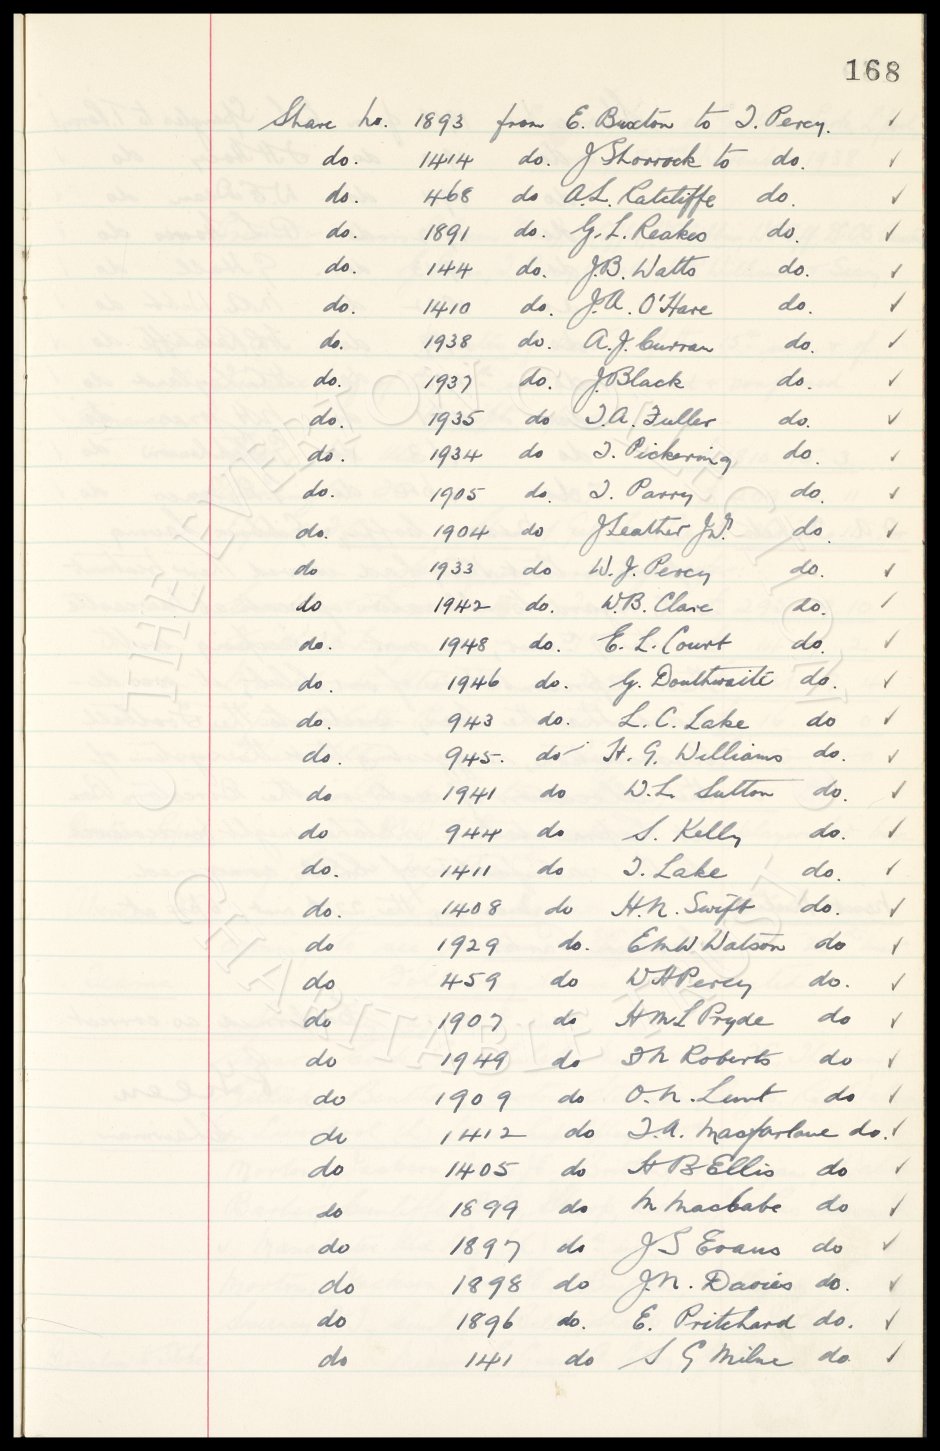 168
Share No. 1893 from E. Buxton to T. Percy. ✓
do. 1414 do. J Shorrock to do. ✓
do. 468 do A.L. Ratcliffe do. ✓
do. 1891 do. G. L. Reakes do. ✓
do. 144 do. J.B. Watts do. ✓
do. 1410 do. J.A. O'Hare do. ✓
do. 1938 do. A. J. Curran do. ✓
do. 1937 do. J Black do. ✓
do. 1935 do T.A. Fuller do. ✓
do. 1934 do T. Pickering do. ✓
do. 1905 do. T. Parry do. ✓
do. 1904 do J Leather Jr. do. ✓
do 1933 do W. J. Percy do. ✓
do 1942 do. W.B. Clare do. ✓
do. 1948 do. E. L. Court do. ✓
do. 1946 do. G. Douthwaite do. ✓
do. 943 do. L. C. Lake do ✓
do. 945. do H. G. Williams do. ✓
do 1941 do W.L. Sutton do. ✓
do 944 do S. Kelly do. ✓
do. 1411 do T. Lake do. ✓
do. 1408 do H.N. Swift do. ✓
do 1929 do. E M W Watson do ✓
do 459 do W H Percy do. ✓
do 1907 do H M L Pryde do ✓
do 1949 do N Roberts do ✓
do 1909 do O. N. Lunt do ✓
do 1412 do T.A. Macfarlane do. ✓
do 1405 do H B Ellis do ✓
do 1899 do M MacCabe do ✓
do 1897 do J S Evans do ✓
do 1898 do J.N. Davies do. ✓
do 1896 do. E. Pritchard do. ✓
do 141 do S G Milne do. ✓
THE EVERTON COLLECTION CHARITABLE TRUST